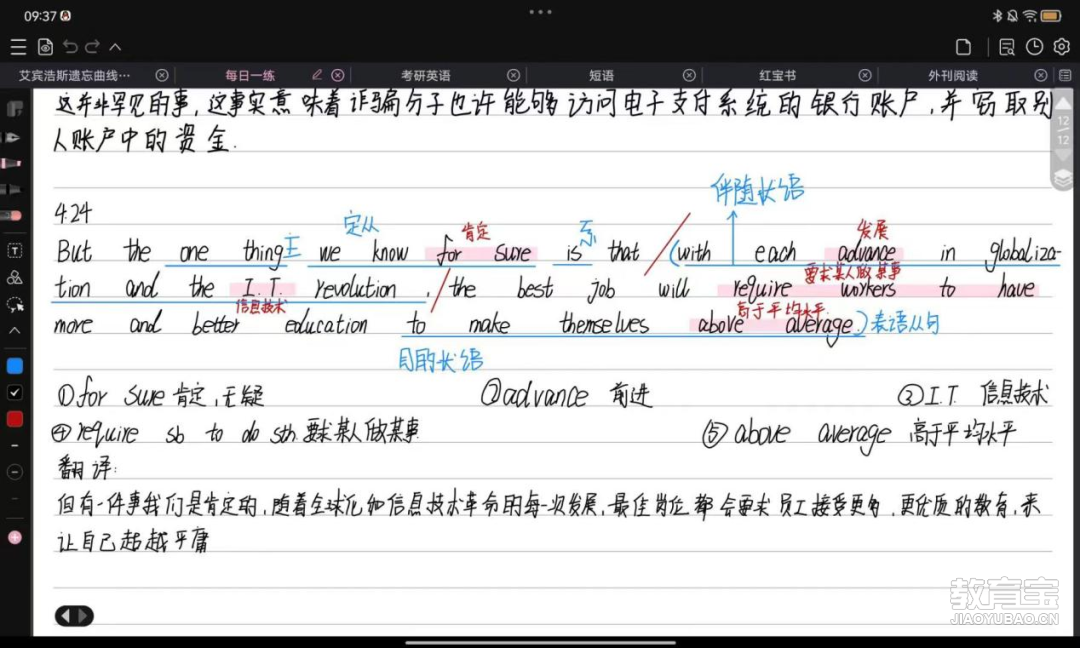 09:37
艾宾浩斯遗忘曲线…
每日一练
考研英语
短语
红宝书
外刊阅读
这并非罕见的事，这事实意味着诈骗分子也许能够访问电子支付系统的银行账户，并窃取别
人账户中的资金.
12
12
4.24
伴随状语
定从
肯定
系
发展
But the one thing 主 we know for sure is that (with each advance in globaliza-
要求某人做某事
tion and the I.T. revolution, the best job will require workers to have
信息技术
高于平均水平
more and better education to make themselves above average.) 表语从句
目的状语
①for sure 肯定,无疑 ②advance 前进 ③I.T. 信息技术
④require sb to do sth.要求某人做某事 ⑤above average 高于平均水平
翻译:
但有一件事我们是肯定的,随着全球化和信息技术革命的每一次发展,最佳岗位都会要求员工接受更多、更优质的教育,来
让自己超越平庸
教育宝
JIAOYUBAO.CN